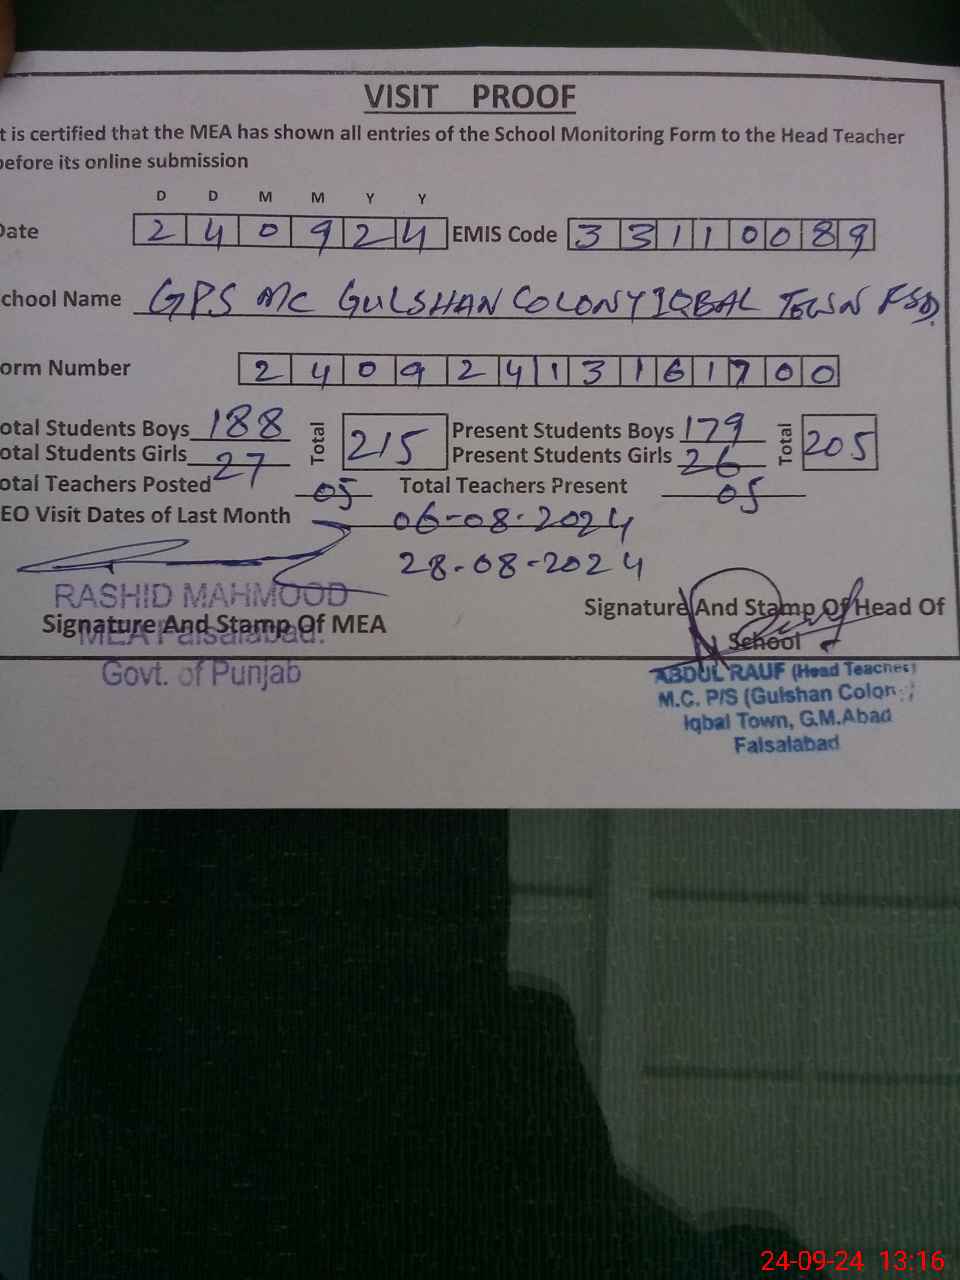 VISIT PROOF
t is certified that the MEA has shown all entries of the School Monitoring Form to the Head Teacher
before its online submission
D D M M Y Y
Date 2 4 0 9 2 4 EMIS Code 3 3 1 1 0 0 8 9
chool Name GPS MC GULSHAN COLONY IQBAL TOWN FSD.
orm Number 2 4 0 9 2 4 1 3 1 6 1 7 0 0
otal Students Boys 188 Total 215 Present Students Boys 179 Total 205
otal Students Girls 27 Present Students Girls 26
otal Teachers Posted 05 Total Teachers Present 05
EO Visit Dates of Last Month 06-08-2024
28-08-2024
RASHID MAHMOOD
Signature And Stamp Of MEA
MEA Faisalabad.
Govt. of Punjab
Signature And Stamp Of Head Of
School
ABDUL RAUF (Head Teacher)
M.C. P/S (Gulshan Colony)
Iqbal Town, G.M.Abad
Faisalabad
24-09-24 13:16